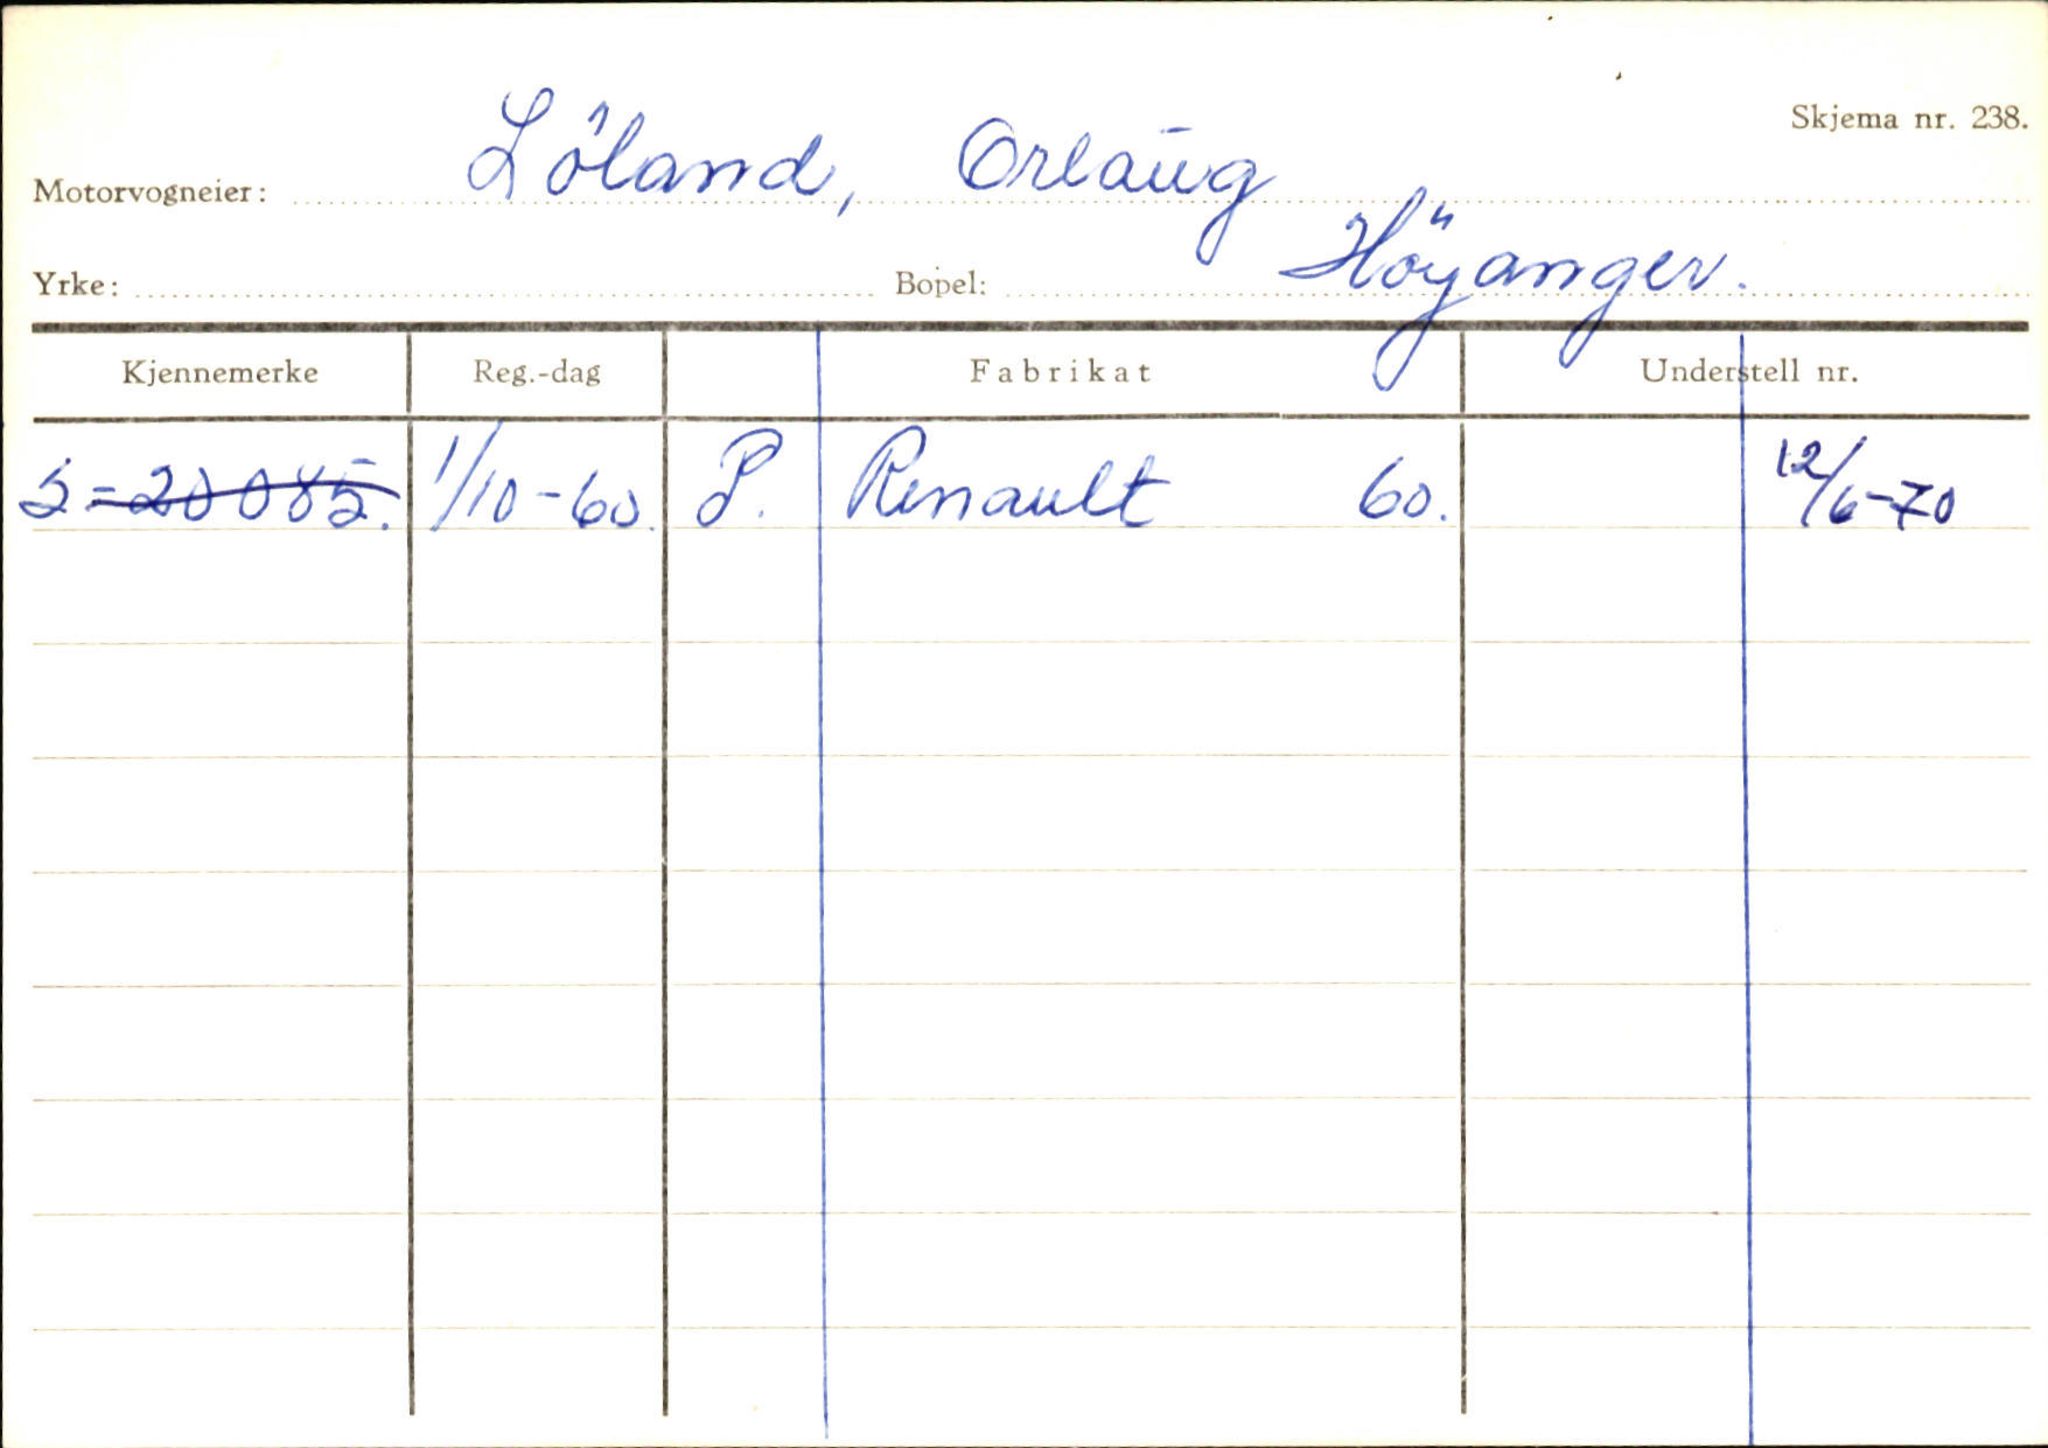 Skjema nr. 238.
Motorvogneier: Löland, Orlaug
Yrke: Bopel: Höyanger.
Kjennemerke Reg.-dag Fabrikat Understell nr.
S-20085. 1/10-60. P. Renault 60. 12/6-70